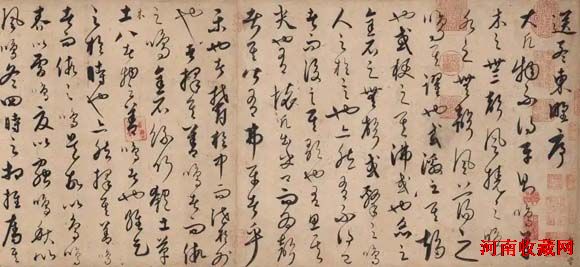 送孟東野序
大凡物不得平則鳴草
木之無聲風撓之鳴
水之無聲風蕩之
鳴其躍也或激之其趨
也或梗之其沸也或炙之
金石之無聲或擊之鳴
人之於言也亦然有不得已
者而後言其歌也有思其
哭也有懷凡出口而為聲
者其皆有弗平者乎
樂也者鬱於中而泄於外
也者擇其善鳴者而假
之鳴金石絲竹匏土革
木八者物之善鳴者也維天
之於時也亦然擇其善鳴
者而假之鳴是故以鳥鳴
春以雷鳴夏以蟲鳴秋以
風鳴冬四時之相推奪其
河南收藏网